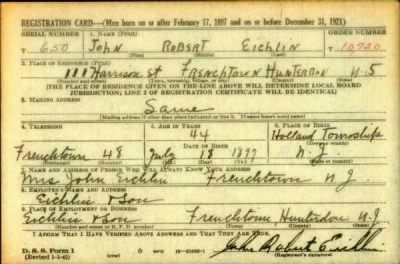 REGISTRATION CARD—(Men born on or after February 17, 1897 and on or before December 31, 1921)
SERIAL NUMBER 1. NAME (Print) ORDER NUMBER
T 650 John Robert Eichlin 10720
(First) (Middle) (Last)
2. PLACE OF RESIDENCE (Print)
111 Harrison St Frenchtown Hunterdon N J
(Number and street) (Town, township, village, or city) (County) (State)
[THE PLACE OF RESIDENCE GIVEN ON THE LINE ABOVE WILL DETERMINE LOCAL BOARD
JURISDICTION; LINE 2 OF REGISTRATION CERTIFICATE WILL BE IDENTICAL]
3. MAILING ADDRESS
Same
[Mailing address if other than place indicated on line 2. If same insert word same]
4. TELEPHONE 5. AGE IN YEARS 6. PLACE OF BIRTH
44 Holland Township
DATE OF BIRTH (Town or county)
Frenchtown 48 July 18 1897 N. J.
(Exchange) (Number) (Mo.) (Day) (Yr.) (State or country)
7. NAME AND ADDRESS OF PERSON WHO WILL ALWAYS KNOW YOUR ADDRESS
Mrs John Eichlin Frenchtown N J
8. EMPLOYER'S NAME AND ADDRESS
Eichlin & Son
9. PLACE OF EMPLOYMENT OR BUSINESS
Eichlin & Son Frenchtown Hunterdon N. J
(Number and street or R. F. D. number) (Town) (County) (State)
I AFFIRM THAT I HAVE VERIFIED ABOVE ANSWERS AND THAT THEY ARE TRUE.
D. S. S. Form 1
(Revised 1-1-42) (over) John Robert Eichlin
(Registrant's signature)